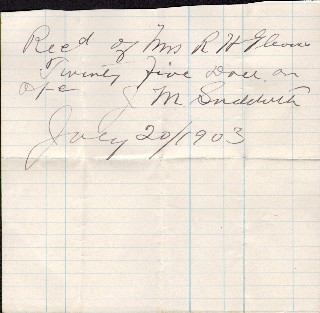 Recd of Mrs R H
Twenty Five Doll on
J M Sudderth
July 20/1903